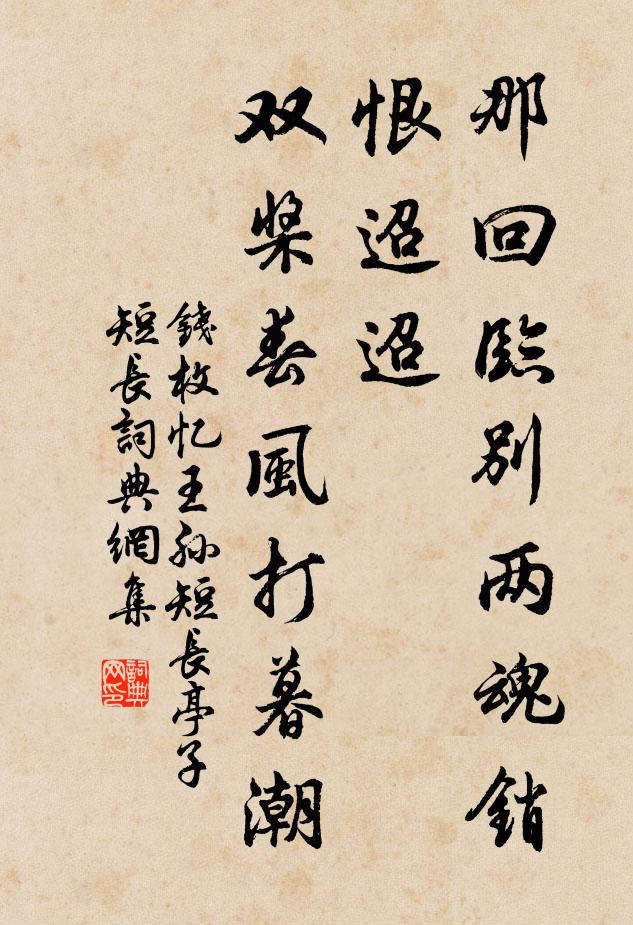 那回臨别两魂銷
恨迢迢
双桨春風打暮潮
錢枚忆王孙短長亭子
短長詞典網集
詞典网印